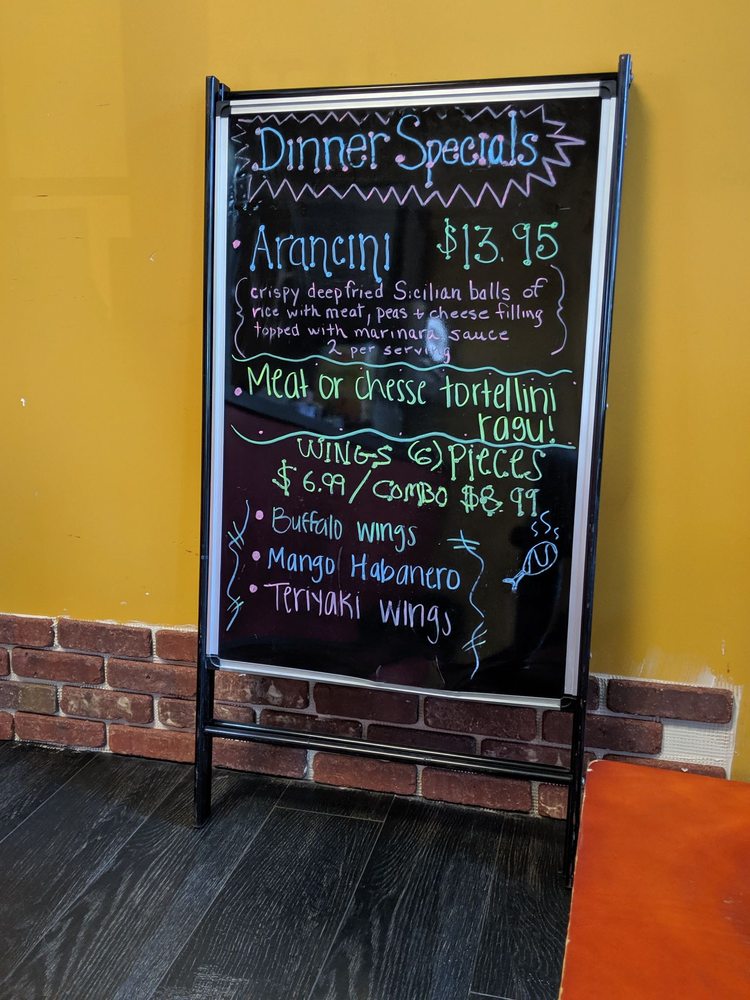 Dinner Specials
• Arancini $13.95
(crispy deep fried Sicilian balls of
rice with meat, peas + cheese filling
topped with marinara sauce
2 per serving)
• Meat or chesse tortellini
ragu!
WINGS (6) pieces
$6.99/COMBO $8.99
• Buffalo wings
• Mango Habanero
• Teriyaki wings